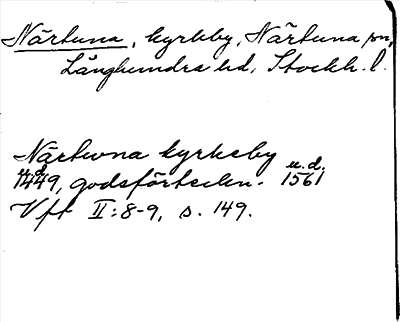 Närtuna, kyrkby, Närtuna sn,
Långhundra hd, Stockh. l.
Närtwna kyrkeby
1449, godsförteckn. u.d. 1561
Vft II:8-9, s. 149.